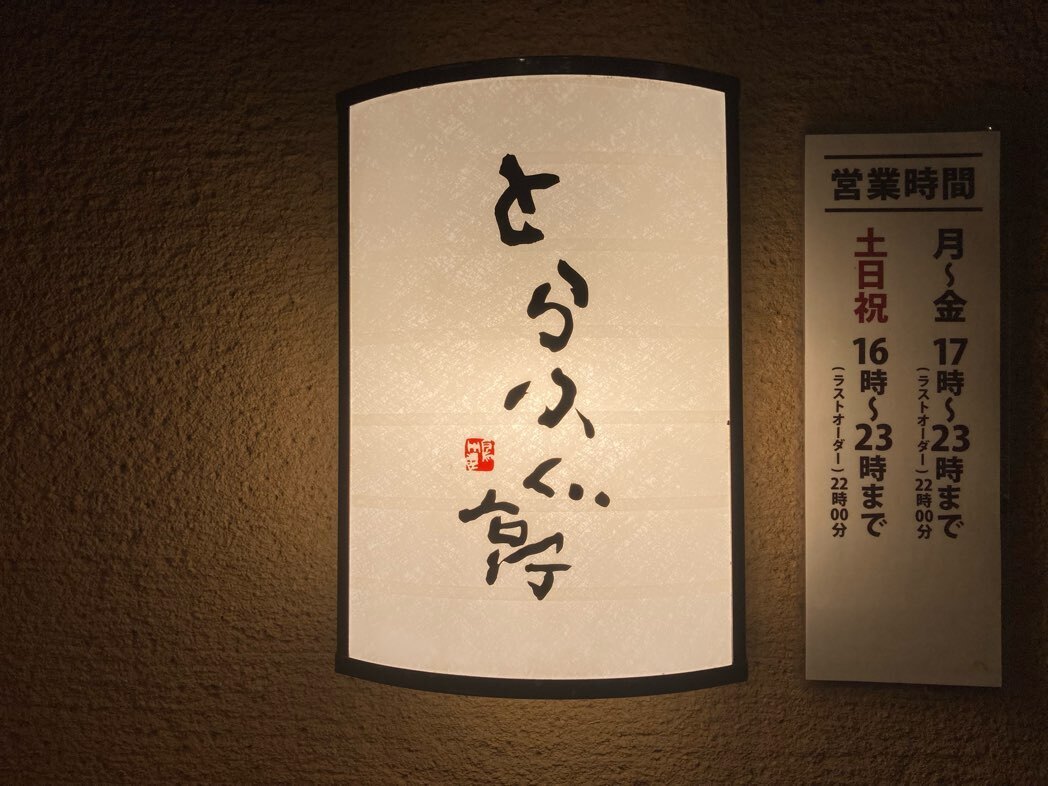 とらふぐ亭
営業時間
月～金 17時～23時まで
(ラストオーダー) 22時00分
土日祝 16時～23時まで
(ラストオーダー) 22時00分